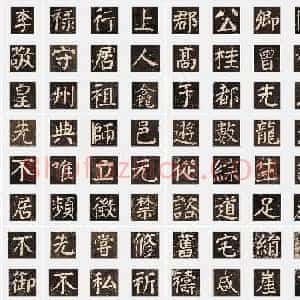 李 禄 行 上 郡 公 卿
敬 守 居 人 高 桂 曾
皇 州 祖 鑫 于 都 先
光 典 師 邑 遊 數 龍
不 唯 立 元 從 綜 結
居 頻 徵 禁 諮 道 足
不 先 嘗 修 舊 宅 絹
御 不 私 祈 禱 咸 崖